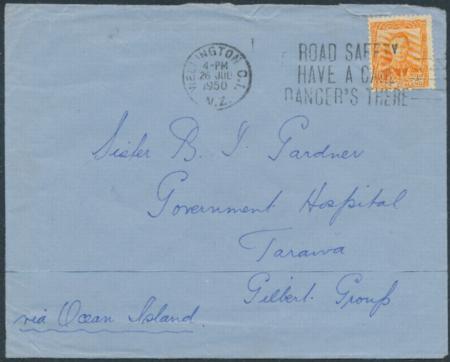 WELLINGTON C.1.
4-PM
26 JUL
1950
N.Z.
ROAD SAFETY
HAVE A CARE
DANGER'S THERE
Sister B. J. Gardner
Government Hospital
Tarawa
Gilbert Group
via Ocean Island.